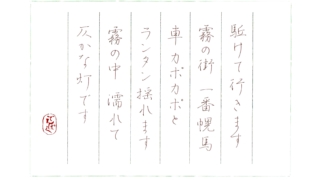 駈けて行きます
霧の街 一番幌馬
車 カポカポと
ランタン揺れます
霧の中 濡れて
仄かな灯です